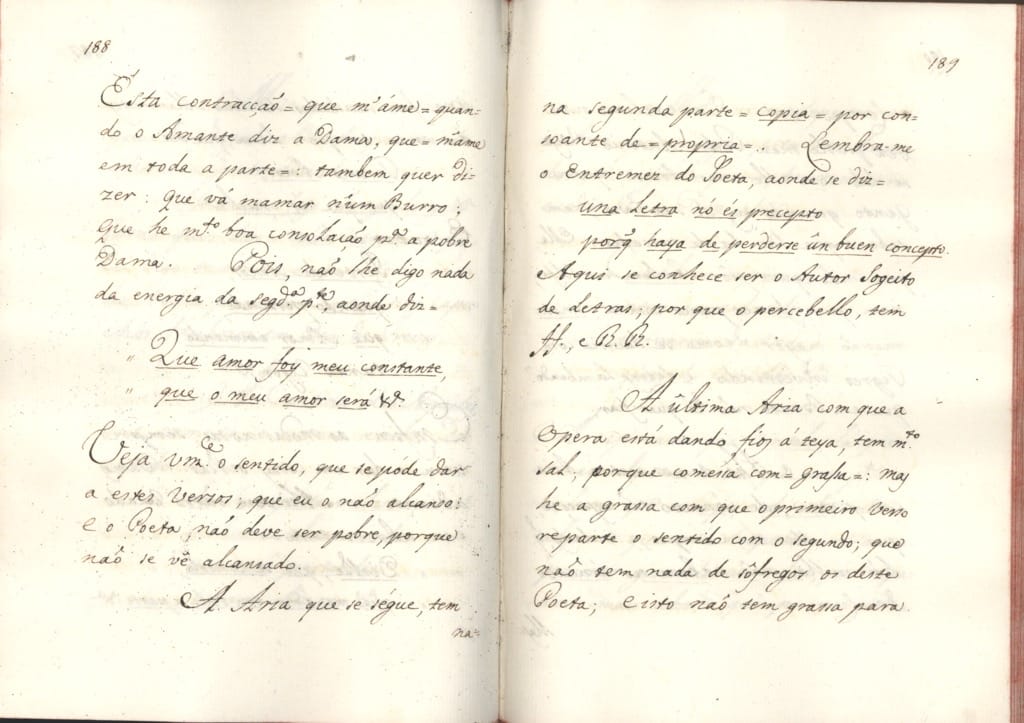 188
Esta contracção= que m'áme= quan-
do o Amante diz a Dama, que= m'ame
em toda a parte=: tambem quer di-
zer: que vá mamar n'um Burro;
que he m.to boa consolacáo p.a a pobre
Dama. Pois, naõ lhe digo nada
da energia da segd.a p.te, aonde diz=
" Que amor foy meu constante,
" que o meu amor será &.
Veja vm.ce o sentido, que se póde dar
a estes versos; que eu o naõ alcanso:
e o Poeta, naó deve ser pobre, porque
naõ se vê alcansado.
A Aria que se ségue, tem
na=
189
na segunda parte= copia= por con-
soante de= propria=. Lembra-me
o Entremez do Poeta, aonde se diz=
una Letra nó és precepto
porq̃ haya de perderse ûn buen concepto.
Aqui se conhece ser o Autor Sogeito
de Letras; por que o percebello, tem
ff, e R. R.
A ûltima Aria com que a
Opera está dando fios á teya, tem m.to
sal; porque comessa com= grassa=: mas
he a grassa com que o primeiro verso
reparte o sentido com o segundo; que
naõ tem nada de sôfregos os deste
Poeta; e isto naõ tem grassa para